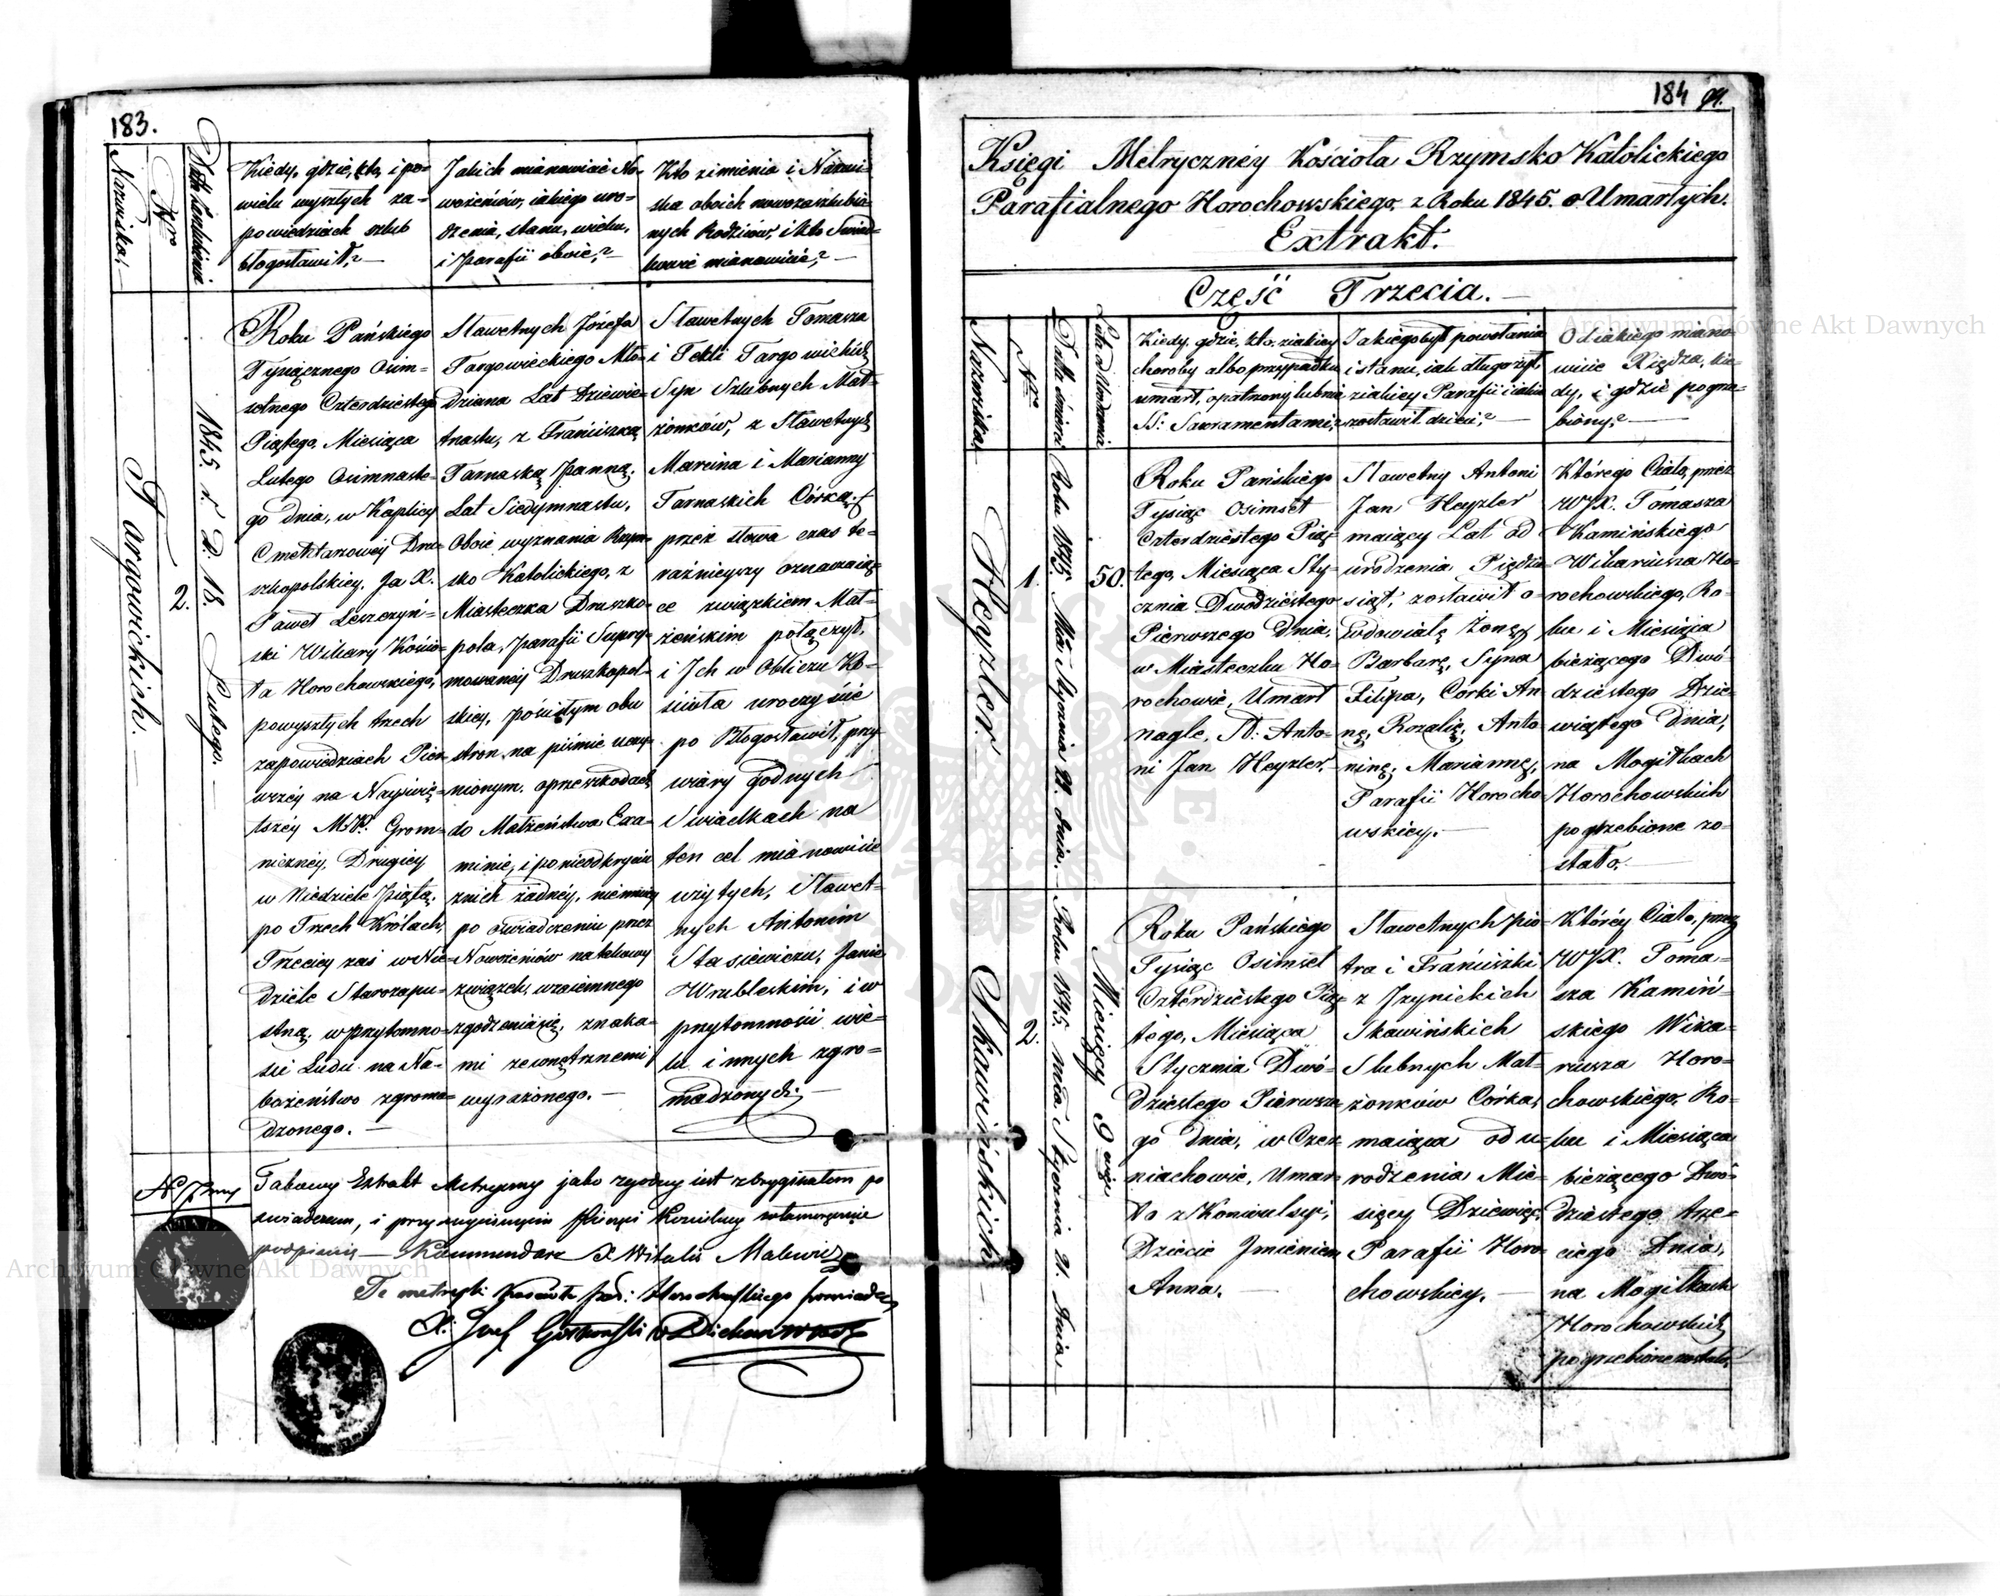 183.
Nazwiska.
Nro
Data Szlubienia
Kiedy, gdzie, kto, i po
wielu wyszłych za=
powiedziach szlub
błogosławił?
Jakich mianowicie No=
wożeńców, iakiego uro=
dzenia, stanu, wieku,
i Parafii oboie?
Kto z imienia i Nazwi=
ska oboich nowozaszlubio
nych Rodziców, i kto Świad=
kowie mianowicie?
Targowickich.
2.
1845. r. D. 18. Lutego.
Roku Pańskiego
Tysiącznego Osim=
setnego Czterdziestego
Piątego, Miesiąca
Lutego Osimnaste=
go dnia, w Kaplicy
Cmętarzowey Dru=
szkopolskiey, Ja X.
Paweł Leszczyń=
ski Wikary Kościo=
ła Horochowskiego,
powyszłych trzech
zapowiedziach Pier=
wszey na Nayświę=
tszéy M. P. Grom=
niczney, Drugiey
w Niedziele piątą,
po Trzech Królach,
Trzeciey zaś w Nie=
dziele Starozapu=
stną, w przytomno=
ści Ludu na Na=
bożeństwo zgroma=
dzonego.
Sławetnych Józefa
Targowieckiego Mło=
dziana Lat Dziewie=
tnastu, z Franciszką
Tarnaską Panną,
Lat Siedymnastu,
Oboie wyznania Rzym=
sko Katolickiego, z
Miasteczka Druszko=
pola, Parafii Supry=
mowaney Druszkopol=
skiey, poświętym obu
stron, na piśmie uczy=
nionym, o przeszkodach
do Małżeństwa Exa=
minie, i po nieodkryciu
żnich żadnéy, niemniey
po oświadczeniu przez
Nowożeńców na takowy
związek, wzaiemnego
zgodzenia się, znaka=
mi zewnętrznemi
wyrażonego.
Sławetnych Tomasza
i Tekli Targowickich
Syn Szlubnych Mał=
żonków, z Sławetnych
Marcina i Maryanny
Tarnaskich Córką,
przez słowa czas te=
raźnieyszy oznaczaią=
ce związkiem Mał=
żeńskim połączył,
i Ich w Obliczu Ko=
ścioła uroczyście
po Błogosławił, przy
wiary godnych
Świadkach na
ten cel mianowicie
wziętych, Sławet=
nych Antonim
Stasiewiczu, Janie
Wrubleskim, i w
przytomności wie=
lu innych zgro=
madzonych.
Takowy Extrakt Metryczny jako zgodny iest z Oryginałem po
świadczam, i przy wyciśnięciu Pieczęci Kościelney własnoręcznie
podpisuię — Kommendarz X Witalis Malewicz
Te metryki
184
Księgi Metryczney Kościoła Rzymsko Katolickiego
Parafialnego Horochowskiego, z Roku 1845. o Umarłych.
Extrakt.
Część Trzecia.
Nazwiska.
Nro
Datta śmierci
Lata od Urodzenia
Kiedy, gdzie, kto, z iakiey
choroby albo przypadku
umarł, opatrzony lub nie
SS: Sakramentami,
Jakiego był powołania
i stanu, iak długo żył
z iakiey Parafii i iakie
zostawił dzieci?
Od iakiego miano=
wicie Xiędza, kie=
dy, i gdzie pogrze=
biony?
Heyzler.
1.
Roku 1845. Mca Stycznia 21. dnia.
50.
Roku Pańskiego
Tysiąc Osimset
Czterdziestego Pią=
tego, Miesiąca Sty=
cznia Dwodziestego
Pierwszego Dnia,
w Miasteczku Ho=
rochowie, Umarł
nagle, S: Anto=
ni Jan Heyzler.
Sławetny Antoni
Jan Heyzler
maiący Lat od
urodzenia Pięćdzie=
siąt, zostawił o=
wdowiałę żonę,
Barbarę, Syna
Filipa, Córki An=
nę, Rozalię, Anto=
ninę, Mariannę,
Parafii Horocho=
wskiey.
Którego Ciało, przez
WJX. Tomasza
Kamińskiego
Wikariusza Ho=
rochowskiego, Ro=
ku i Miesiąca
bieżącego Dwó=
dziestego Dzie=
wiątego Dnia,
na Mogiłkach
Horochowskich
pogrzebione zo=
stało.
Skowińskich
2.
Roku 1845. Mca Stycznia 21. Dnia
Miesięcy 9
Roku Pańskiego
Tysiąc Osimset
Czterdziestego Pią=
tego, Miesiąca
Stycznia Dwó=
dziestego Pierwsze=
go dnia, w Czer
niachowie, Umar=
ła z Konwulsyi,
Dziecie Imieniem
Anna.
Sławetnych Pio=
tra i Franciszki
z
Skawińskich
Slubnych Mał=
żonków Córka,
maiąca od u=
rodzenia Mie=
sięcy Dziewięć,
Parafii Horo=
chowskiey.
Którey Ciało, przez
WJX. Toma=
sza Kamiń=
skiego Wika=
riusza Horo=
chowskiego, Ro=
ku i Miesiąca
bieżącego Dwó=
dziestego Trze=
ciego Dnia,
na Mogiłkach
Horochowskich
pogrzebione zostało.
Archiwum Główne Akt Dawnych
Archiwum Główne Akt Dawnych